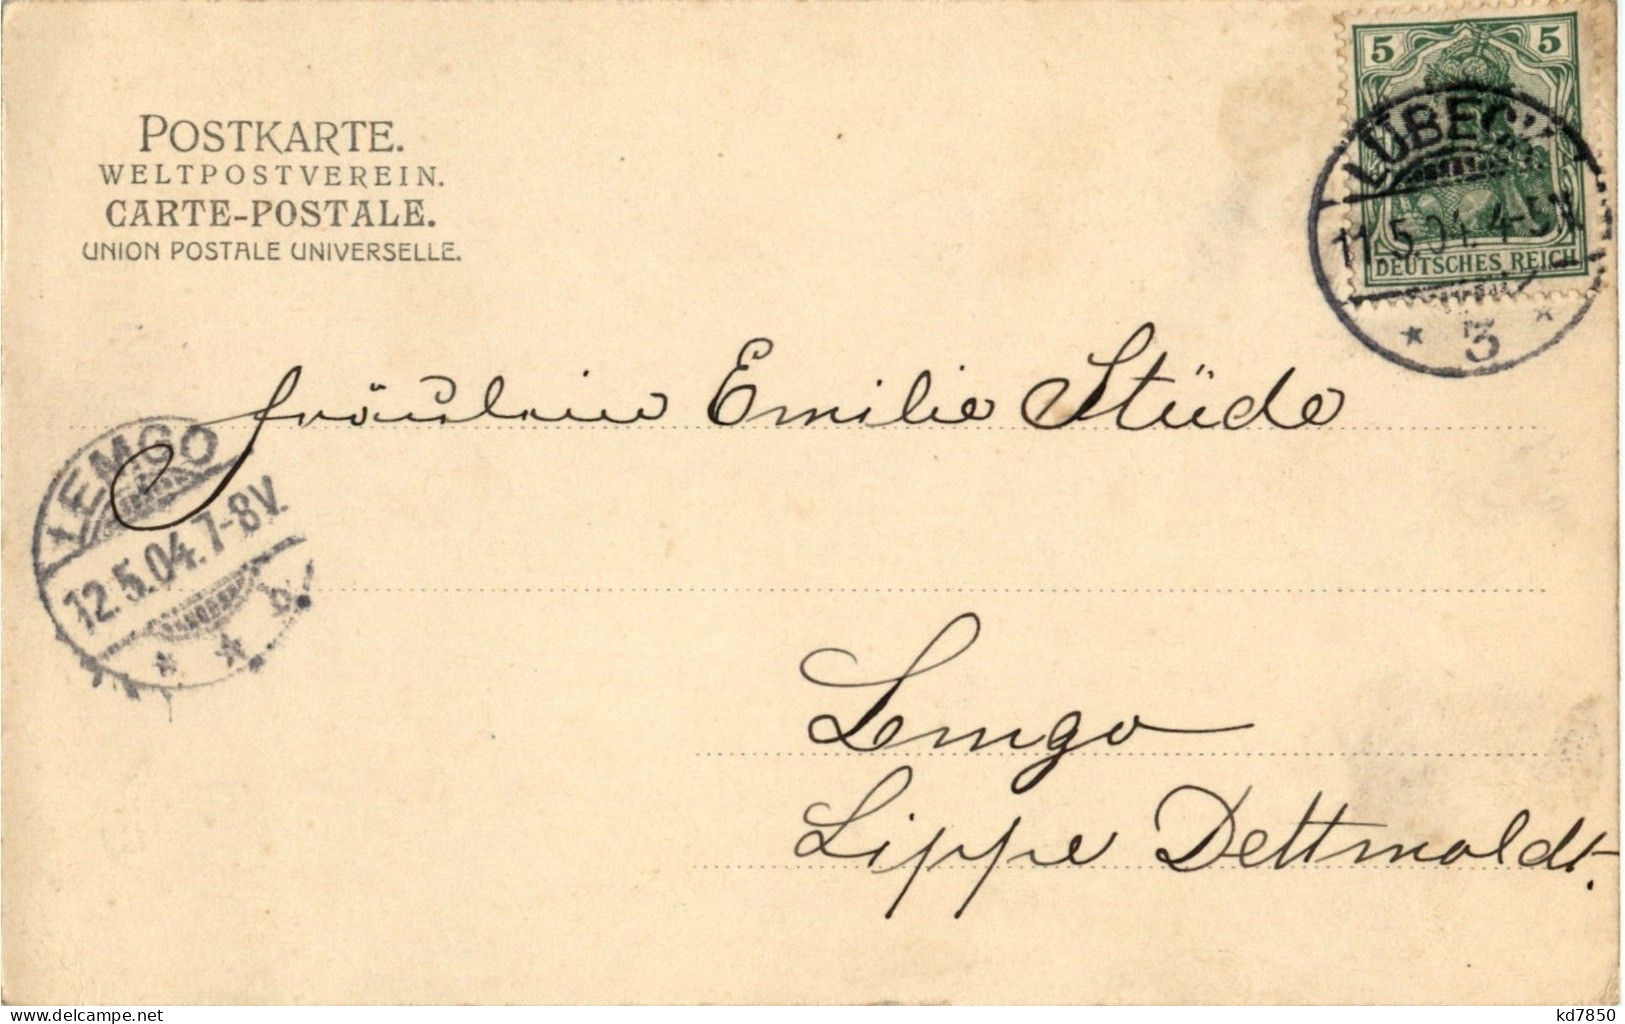 POSTKARTE.
WELTPOSTVEREIN.
CARTE-POSTALE.
UNION POSTALE UNIVERSELLE.
5 5
DEUTSCHES REICH
LÜBECK
11.5.04. 4-5N
* 3 *
Fräulein Emilie Stüde
LEMGO
12.5.04. 7-8V.
* * b
Lemgo
Lippe Dettmoldt.
www.delcampe.net
kd7850